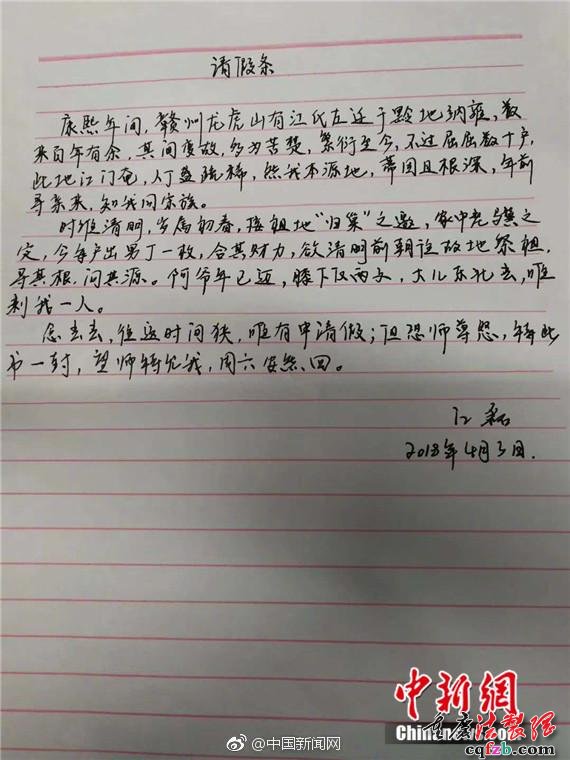 请假条
康熙年间，赣州龙虎山有江氏左迁于黔地纳雍，数
来百年有余，其间变故，多为苦楚，繁衍至今，不过屈屈数十户，
此地江门奄，人丁益疏稀，然我本源地，蒂固且根深，年前
寻亲来，知我同宗族。
时维清明，岁属初春，接祖地“归巢”之邀，家中老骥之
定，今每户出男丁一枚，合其财力，欲清明前朝往故地祭祖，
寻其根，问其源。阿爷年已迈，膝下仅两女，大儿东北去，唯
剩我一人。
念去去，往返时间狭，唯有申请假；但恐师尊怒，特此
书一封，望师特允我，周六安然回。
江磊
2018年4月3日.
@中国新闻网
中新網
Chinanews.com
重庆法制网
cqfzb.com